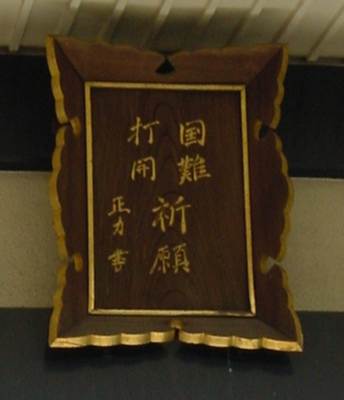 国難
打開
祈願
正力書